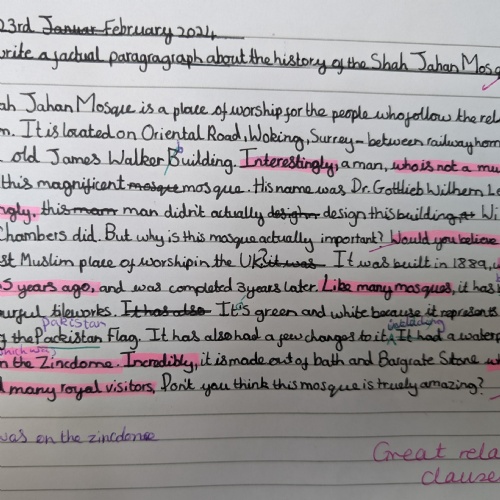 23rd Januar February 2024
write a factual paragragraph about the history of the Shah Jahan Mosq
ah Jahan Mosque is a place of worship for the people who follow the rel
m. It is located on Oriental Road, Woking, Surrey - between railway hom
old James Walker Building. Interestingly, a man, who is not a mu
this magnificent mosque mosque. His name was Dr. Gottlieb Wilhem Le
ngly, this man man didn't actually design design this building Wi
Chambers did. But why is this mosque actually important? Would you believe
st Muslim place of worship in the UK? it was It was built in 1889, w
5 years ago, and was completed 3 years later. Like many mosques, it has
ourful tileworks. It has also It is green and white because it represents
Pakistan including
g the Packistan Flag. It has also had a few changes to it. It had a water
which was
n the Zincdome. Incredibly, it is made out of bath and Bargrate Stone w
d many royal visitors. Don't you think this mosque is truely amazing?
was on the zincdome
Great rela
clause